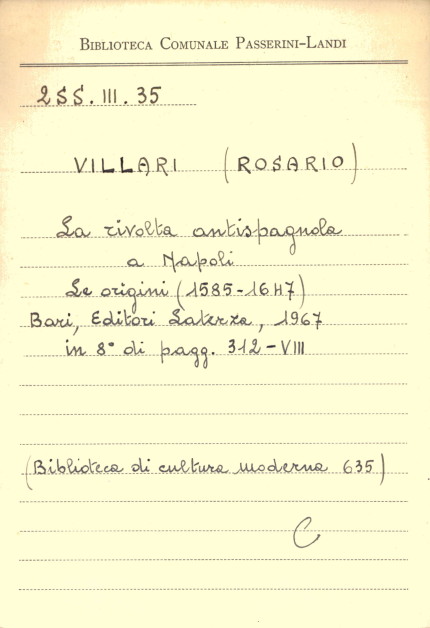 BIBLIOTECA COMUNALE PASSERINI-LANDI
2SS. III. 35
VILLARI (ROSARIO)
La rivolta antispagnola
a Napoli
Le origini (1585-1647)
Bari, Editori Laterza, 1967
in 8° di pagg. 312-VIII
(Biblioteca di cultura moderna 635)
C